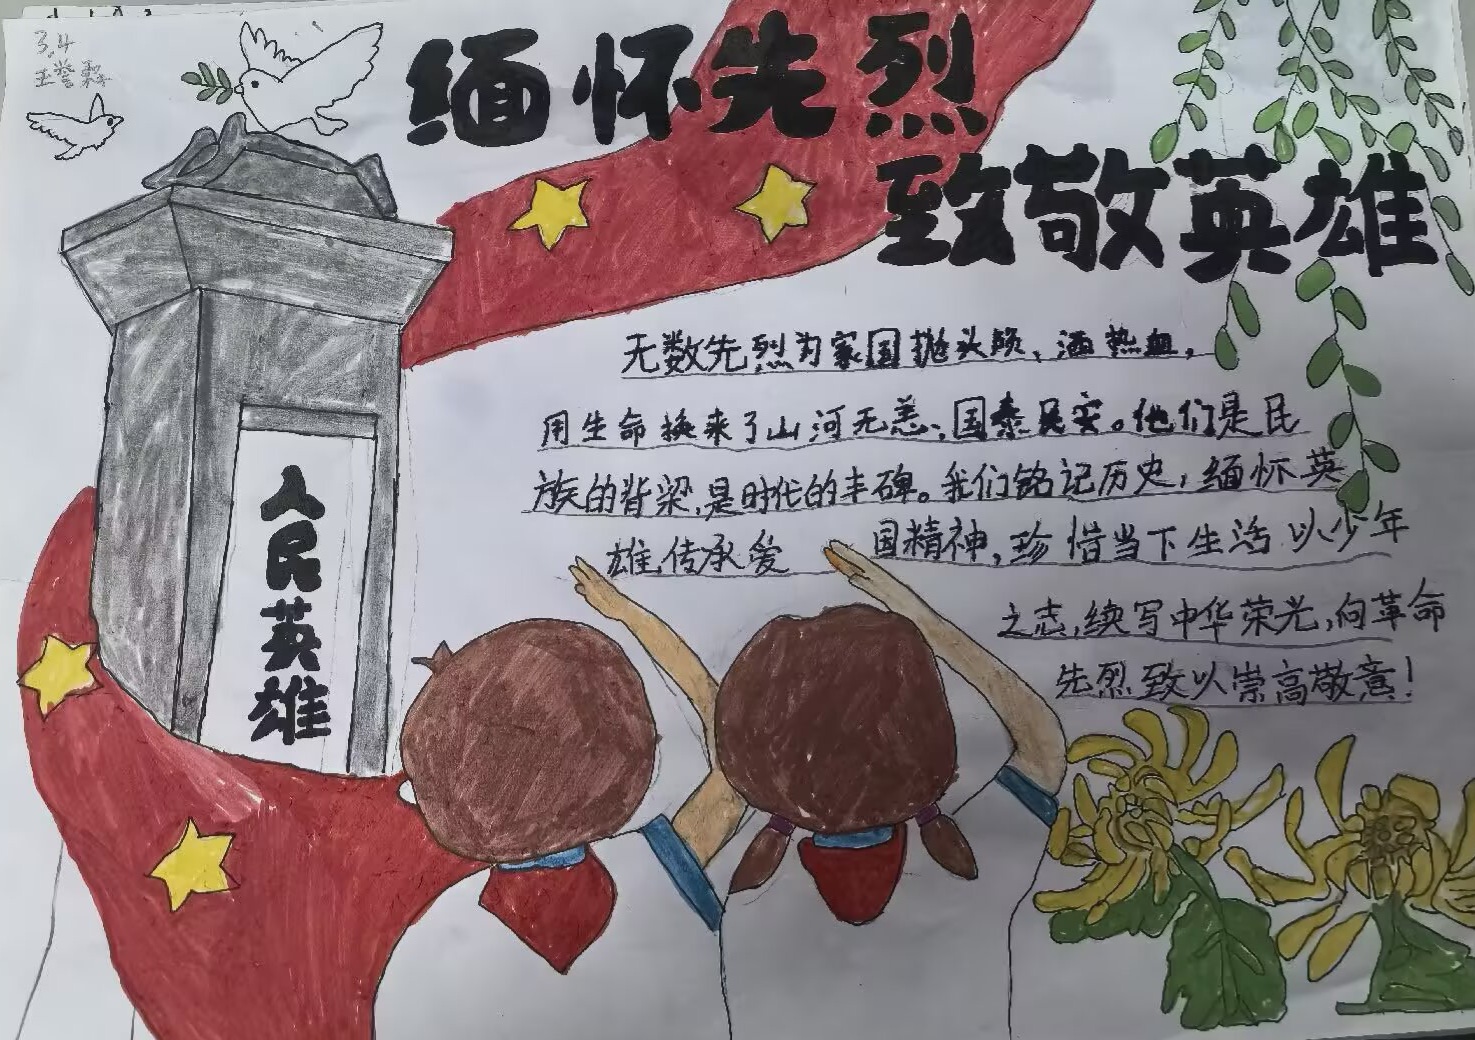 3.4
缅怀先烈
致敬英雄
人民英雄
无数先烈为家国抛头颅、洒热血，
用生命换来了山河无恙、国泰民安。他们是民
族的脊梁，是时代的丰碑。我们铭记历史，缅怀英
雄，传承爱国精神，珍惜当下生活以少年
之志，续写中华荣光，向革命
先烈致以崇高敬意！